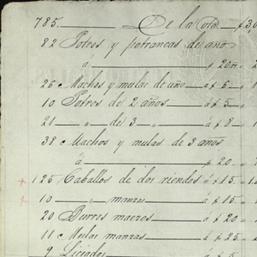 785 — De la ota $3,0
82 Potros y potrancas de año
á — $ 20
25 Machos y mulas de año — á $ 6 — 1
10 Potros de 2 años — á $ 5 —
21 " de 3 " — á $ 8 — 1
38 Machos y mulas de 3 años
á — $ 20. — 7
+ 125 Caballos de dos riendas á $ 15. — 1
+ 10 " manzos — á $ 15 — 1
20 Burros maeros — á $ 20 —
11 Mulas manzas — á $ 25 —
9 Liciados — á $ 5